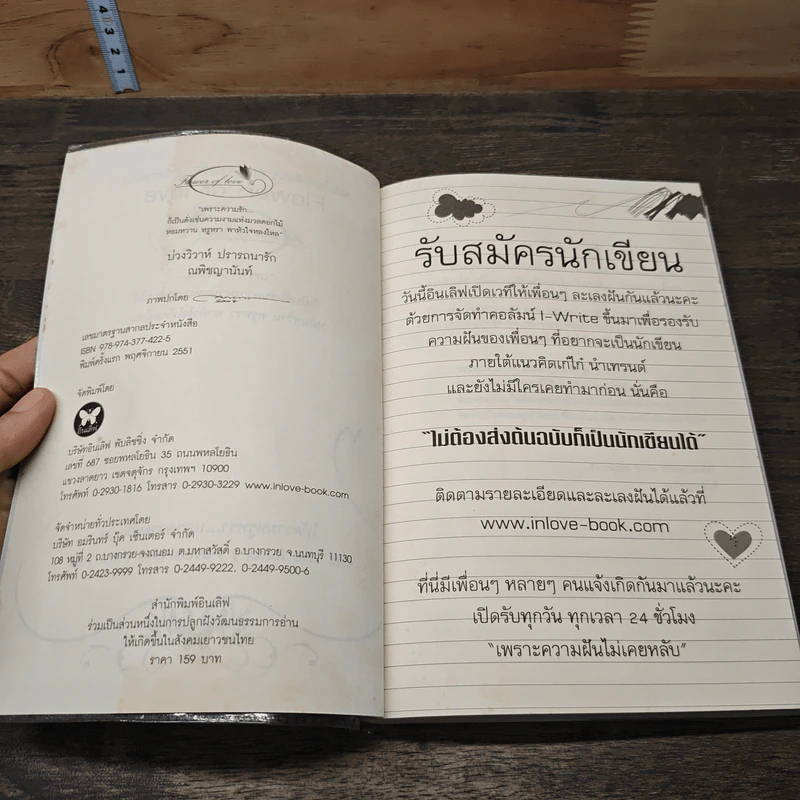 4
3
2
1
Flower of love
"เพราะความรัก...
ก็เป็นดั่งเช่นความงามแห่งมวลดอกไม้
หอมหวาน หรูหรา พาหัวใจหลงใหล"
บ่วงวิวาห์ ปรารถนารัก
ณพิชญานันท์
ภาพปกโดย
เลขมาตรฐานสากลประจำหนังสือ
ISBN 978-974-377-422-5
พิมพ์ครั้งแรก พฤศจิกายน 2551
จัดพิมพ์โดย
อินเลิฟ
บริษัทอินเลิฟ พับลิชชิ่ง จำกัด
เลขที่ 687 ซอยพหลโยธิน 35 ถนนพหลโยธิน
แขวงลาดยาว เขตจตุจักร กรุงเทพฯ 10900
โทรศัพท์ 0-2930-1816 โทรสาร 0-2930-3229 www.inlove-book.com
จัดจำหน่ายทั่วประเทศโดย
บริษัท อมรินทร์ บุ๊ค เซ็นเตอร์ จำกัด
108 หมู่ที่ 2 ถ.บางกรวย-จงถนอม ต.มหาสวัสดิ์ อ.บางกรวย จ.นนทบุรี 11130
โทรศัพท์ 0-2423-9999 โทรสาร 0-2449-9222, 0-2449-9500-6
สำนักพิมพ์อินเลิฟ
ร่วมเป็นส่วนหนึ่งในการปลูกฝังวัฒนธรรมการอ่าน
ให้เกิดขึ้นในสังคมเยาวชนไทย
ราคา 159 บาท
รับสมัครนักเขียน
วันนี้อินเลิฟเปิดเวทีให้เพื่อนๆ ละเลงฝันกันแล้วนะคะ
ด้วยการจัดทำคอลัมน์ I-Write ขึ้นมาเพื่อรองรับ
ความฝันของเพื่อนๆ ที่อยากจะเป็นนักเขียน
ภายใต้แนวคิดเก๋ไก๋ นำเทรนด์
และยังไม่มีใครเคยทำมาก่อน นั่นคือ
"ไม่ต้องส่งต้นฉบับก็เป็นนักเขียนได้"
ติดตามรายละเอียดและละเลงฝันได้แล้วที่
www.inlove-book.com
ที่นี่มีเพื่อนๆ หลายๆ คนแจ้งเกิดกันมาแล้วนะคะ
เปิดรับทุกวัน ทุกเวลา 24 ชั่วโมง
"เพราะความฝันไม่เคยหลับ"